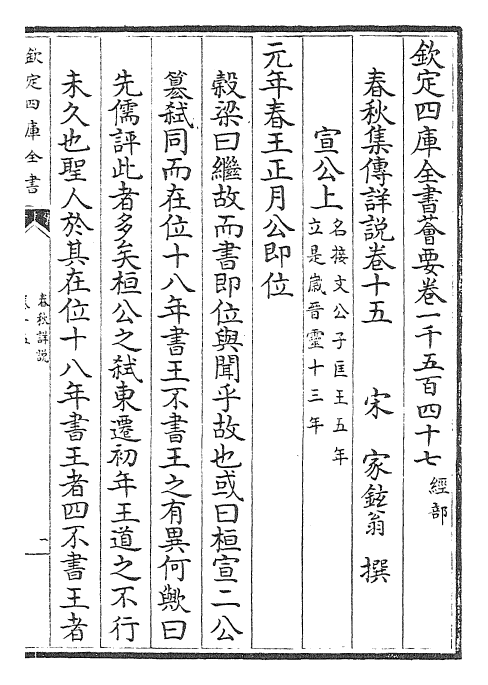 欽定四庫全書薈要卷一千五百四十七 經部
春秋集傳詳說卷十五 宋 家鉉翁 撰
宣公上 名接文公子匡王五年
立是歲晉靈十三年
元年春王正月公即位
穀梁曰繼故而書即位與聞乎故也或曰桓宣二公
篡弑同而在位十八年書王不書王之有異何歟曰
先儒評此者多矣桓公之弑東遷初年王道之不行
未久也聖人於其在位十八年書王者四不書王者
欽定四庫全書
春秋詳說
一